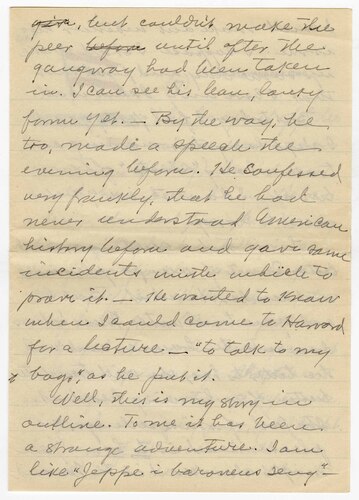 give, but couldn't make the
peer before until after the
gangway had been taken
in. I can see his lean, lanky
form yet. — By the way, he
too, made a speech the
evening before. He confessed
very frankly, that he had
never understood American
history before and gave some
incidents with which to
prove it. — He wanted to know
when I could come to Harvard
for a lecture — "to talk to my
boys", as he put it.
Well, this is my story in
outline. To me it has been
a strange adventure. I am
like "Jeppe i baronens seng" —